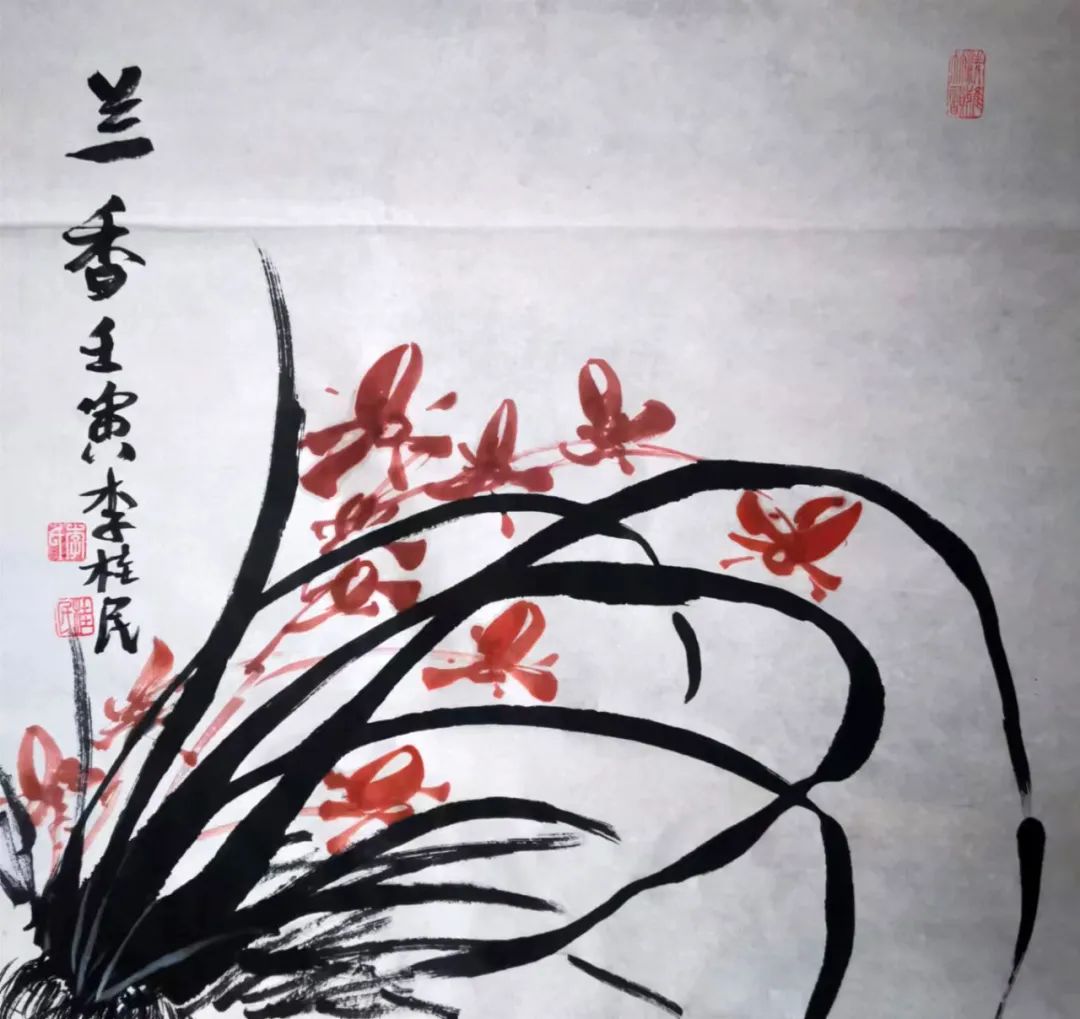 兰香壬寅李桂民